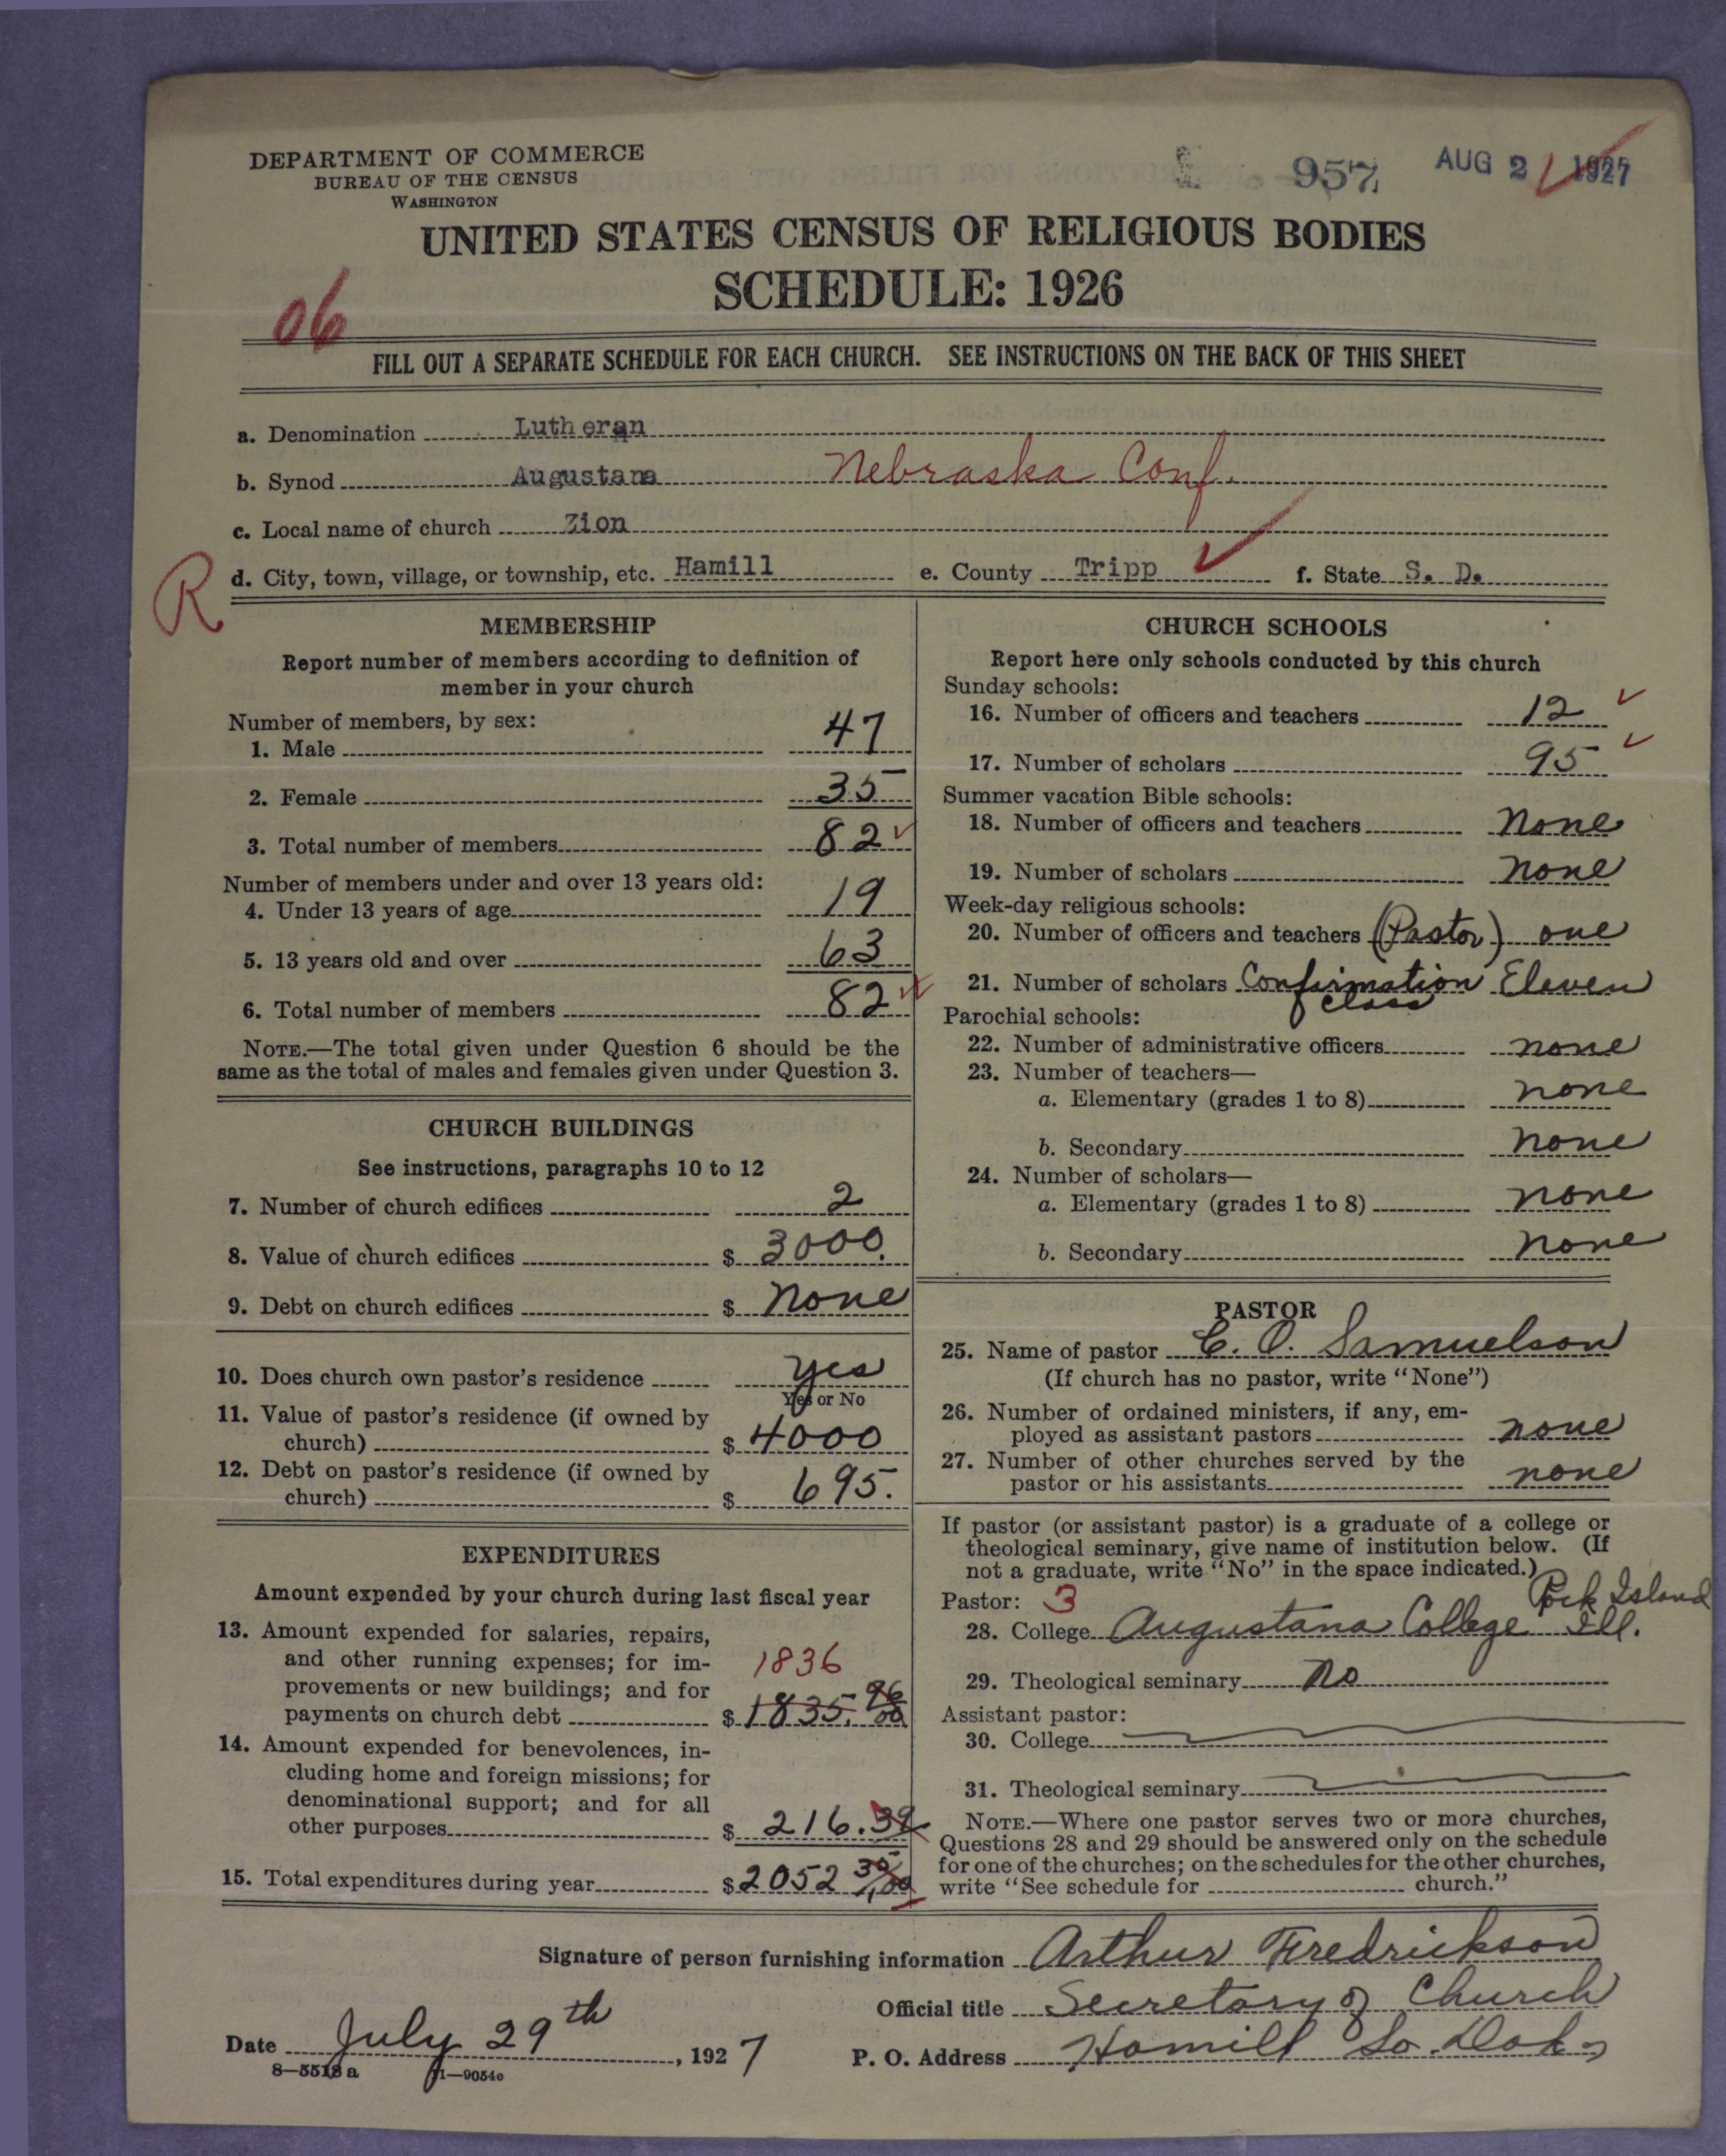 DEPARTMENT OF COMMERCE
BUREAU OF THE CENSUS
WASHINGTON
957
AUG 2 1927
UNITED STATES CENSUS OF RELIGIOUS BODIES
SCHEDULE: 1926
06
FILL OUT A SEPARATE SCHEDULE FOR EACH CHURCH. SEE INSTRUCTIONS ON THE BACK OF THIS SHEET
a. Denomination Lutheran
b. Synod Augustana Nebraska Conf.
c. Local name of church Zion
R
d. City, town, village, or township, etc. Hamill e. County Tripp f. State S. D.
MEMBERSHIP
Report number of members according to definition of
member in your church
Number of members, by sex:
1. Male 47
2. Female 35
3. Total number of members 82
Number of members under and over 13 years old:
4. Under 13 years of age 19
5. 13 years old and over 63
6. Total number of members 82
NOTE.—The total given under Question 6 should be the
same as the total of males and females given under Question 3.
CHURCH BUILDINGS
See instructions, paragraphs 10 to 12
7. Number of church edifices 2
8. Value of church edifices $ 3000.
9. Debt on church edifices $ None
10. Does church own pastor's residence yes
Yes or No
11. Value of pastor's residence (if owned by
church) $ 4000
12. Debt on pastor's residence (if owned by
church) $ 695.
EXPENDITURES
Amount expended by your church during last fiscal year
13. Amount expended for salaries, repairs,
and other running expenses; for im-
1836
provements or new buildings; and for
payments on church debt $ 1835. 96/00
14. Amount expended for benevolences, in-
cluding home and foreign missions; for
denominational support; and for all
other purposes $ 216.39
15. Total expenditures during year $ 2052 35/100
CHURCH SCHOOLS
Report here only schools conducted by this church
Sunday schools:
16. Number of officers and teachers 12
17. Number of scholars 95
Summer vacation Bible schools:
18. Number of officers and teachers None
19. Number of scholars none
Week-day religious schools:
20. Number of officers and teachers (Pastor) one
21. Number of scholars Confirmation Eleven
class
Parochial schools:
22. Number of administrative officers none
23. Number of teachers—
a. Elementary (grades 1 to 8) none
b. Secondary none
24. Number of scholars—
a. Elementary (grades 1 to 8) none
b. Secondary none
PASTOR
25. Name of pastor C. O. Samuelson
(If church has no pastor, write "None")
26. Number of ordained ministers, if any, em-
ployed as assistant pastors none
27. Number of other churches served by the
pastor or his assistants none
If pastor (or assistant pastor) is a graduate of a college or
theological seminary, give name of institution below. (If
not a graduate, write "No" in the space indicated.)
Pastor: 3 Rock Island
28. College Augustana College Ill.
29. Theological seminary no
Assistant pastor:
30. College
31. Theological seminary
NOTE.—Where one pastor serves two or more churches,
Questions 28 and 29 should be answered only on the schedule
for one of the churches; on the schedules for the other churches,
write "See schedule for church."
Signature of person furnishing information Arthur Fredrickson
Official title Secretary of Church
Date July 29th, 1927
P. O. Address Hamill So. Dak.
8—5518 a 11—9054c